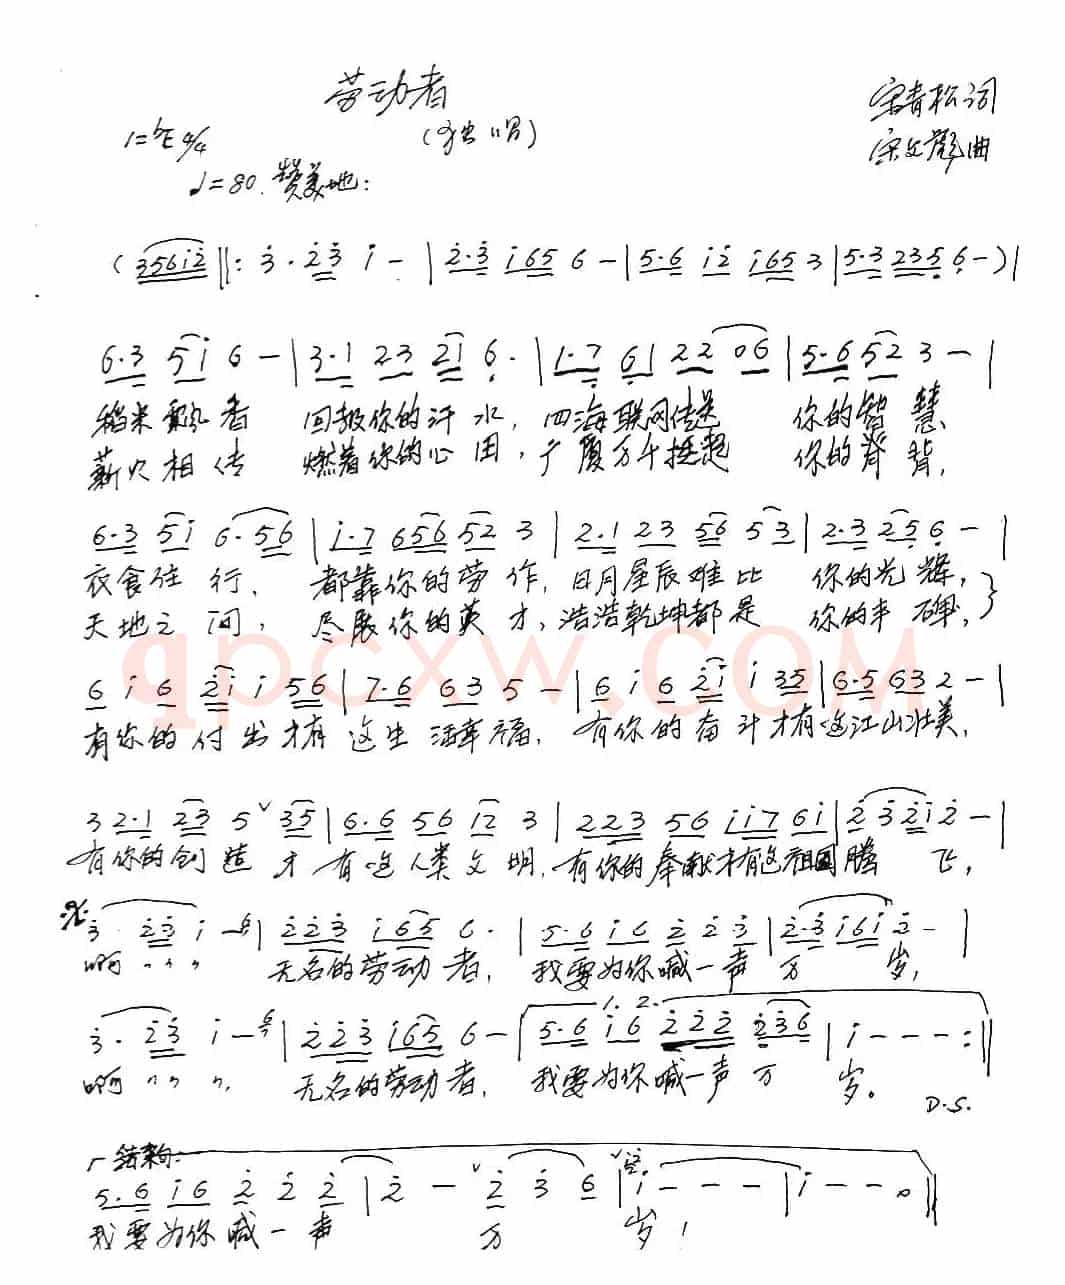 劳动者
(独唱)
宋青松词
1=♭E 4/4
宋文彪曲
♩=80. 赞美地:
(35612‖: 3·23 1 - | 2·3 165 6 - | 5·6 12 165 3 | 5·3 235 6 - )|
6·3 51 6 - | 3·1 23 21 6· | 1·7 61 22 06 | 5·6 52 3 - |
稻米飘香 回报你的汗水, 四海联网传递 你的智慧、
薪火相传 燃着你的心田, 广厦万千挺起 你的脊背,
6·3 51 6·56 | 1·7 656 52 3 | 2·1 23 56 53 | 2·3 25 6 - |
衣食住行、 都靠你的劳作, 日月星辰难比 你的光辉,
天地之间, 尽展你的英才, 浩浩乾坤都是 你的丰碑,
6 1 6 21 1 56 | 7·6 63 5 - | 6 1 6 21 1 35 | 6·5 63 2 - |
有你的付出才有这生活幸福, 有你的奋斗才有这江山壮美,
3 2·1 23 5 ∨ 35 | 6·6 56 12 3 | 223 56 117 61 | 2 3 21 2 - |
有你的创造 才有这人类文明, 有你的奉献才有这祖国腾飞,
3·23 1 - | 223 165 6· | 5·6 16 2 2 3 | 2·3 161 2 - |
啊 〃〃〃 无名的劳动者, 我要为你喊一声万岁,
1. 2.
3·23 1 - | 223 165 6 - | 5·6 16 222 236 | 1 - - - :‖
啊 〃〃〃, 无名的劳动者, 我要为你喊一声万岁。
D.S.
结束句:
5·6 16 2 2 2 | 2 - ∨ 2 3 6 | ∨ 1 - - - | 1 - - 0 ‖
我要为你喊一声 万 岁!
qpcxw.com